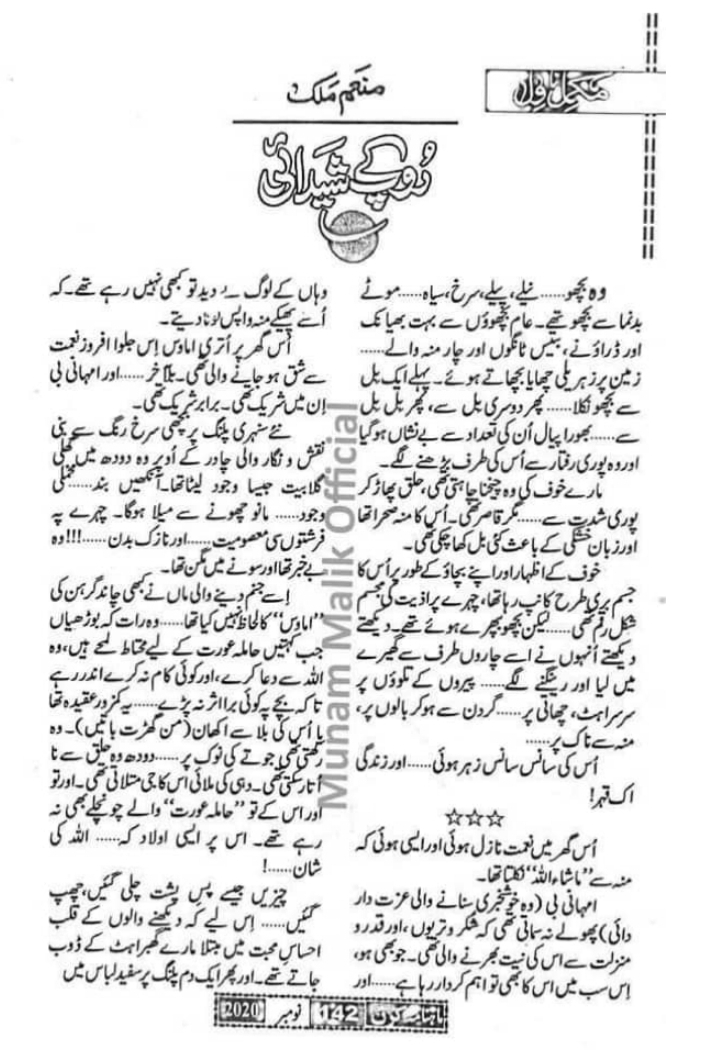 مکمل ناول
منعم ملک
رُوپ کے شیدائی
وہ بچھو...... نیلے، پیلے، سرخ، سیاہ...... موٹے
بدنما سے بچھو تھے۔ عام بچھوؤں سے بہت بھیانک
اور ڈراؤنے، بیس ٹانگوں اور چار منہ والے......
زمین پر زہریلی چھایا بچھاتے ہوئے۔ پہلے ایک بل
سے بچھو نکلا...... پھر دوسری بل سے، پھر بل بل
سے...... بھورا پیال اُن کی تعداد سے بے نشاں ہو گیا
اور وہ پوری رفتار سے اُس کی طرف بڑھنے لگے۔
مارے خوف کی وہ چیخنا چاہتی تھی، حلق پھاڑ کر
پوری شدت سے...... مگر قاصر تھی۔ اُس کا منہ صحرا تھا
اور زبان خشکی کے باعث کئی بل کھا چکی تھی۔
خوف کے اظہار اور اپنے بچاؤ کے طور پر اُس کا
جسم بری طرح کانپ رہا تھا، چہرے پر اذیت کی مجسم
شکل رقم تھی...... لیکن بچھو بپھرے ہوئے تھے۔ دیکھتے
دیکھتے اُنہوں نے اسے چاروں طرف سے گھیرے
میں لیا اور رینگنے لگے...... پیروں کے تلوؤں پر
سرسراہٹ، چھاتی پر...... گردن سے ہو کر بالوں پر،
منہ سے ناک پر......
اُس کی سانس سانس زہر ہوئی...... اور زندگی
اک قہر!
☆☆☆
اُس گھر میں نعمت نازل ہوئی اور ایسی ہوئی کہ
منہ سے ”ماشاء اللہ“ نکلتا تھا۔
امہانی بی (وہ خوشخبری سنانے والی عزت دار
دائی) پھولے نہ سماتی تھی کہ شکر وتریوں، اور قدر و
منزلت سے اس کی نیت بھرنے والی تھی۔ جو بھی ہو،
اِس سب میں اس کا بھی تو اہم کردار رہا ہے...... اور
وہاں کے لوگ بے دید تو کبھی نہیں رہے تھے۔ کہ
اُسے پھیکے منہ واپس لوٹا دیتے۔
اُس گھر پر اُتری اماوس اِس جلوا افروز نعمت
سے شق ہو جانے والی تھی۔ بلآخر...... اور امہانی بی
اِن میں شریک تھی۔ برابر شریک تھی۔
نئے سنہری پلنگ پر بچھی سرخ رنگ سے بنی
نقش و نگار والی چادر کے اُوپر وہ دودھ میں گھلی
گلابیت جیسا وجود لیٹا تھا۔ آنکھیں بند...... مخملی
وجود...... مانو چھونے سے میلا ہوگا۔ چہرے پہ
فرشتوں سی معصومیت...... اور نازک بدن......!!! وہ
بے خبر تھا اور سونے میں مگن تھا۔
اِسے جنم دینے والی ماں نے کبھی چاند گرہن کی
”اماوس“ کا لحاظ نہیں کیا تھا...... وہ رات کہ بوڑھیاں
جب کہتیں حاملہ عورت کے لیے محتاط لمحے ہیں، وہ
اللہ سے دعا کرے، اور کوئی کام نہ کرے اندر رہے
تا کہ بچے پہ کوئی برا اثر نہ پڑے...... یہ کمزور عقیدہ تھا
یا اُس کی بلا سے اکھان (من گھڑت باتیں)۔ وہ
رکھتی تھی جوتے کی نوک پر...... دودھ وہ حلق سے نا
اُتار سکتی تھی۔ دہی کی ملائی اس کا جی متلاتی تھی۔ اور تو
اور اس کے تو ”حاملہ عورت“ والے چونچلے بھی نہ
رہے تھے۔ اس پر ایسی اولاد کہ...... اللہ کی
شان......!
چیزیں جیسے پسِ پشت چلی گئیں، چھپ
گئیں...... اِس لیے کہ دیکھنے والوں کے قلب
احساسِ محبت میں مبتلا مارے گھبراہٹ کے ڈوب
جاتے تھے۔ اور پھر ایک دم پلنگ پر سفید لباس میں
ماہنامہ کرن 142 نومبر 2020
Munam Malik Official